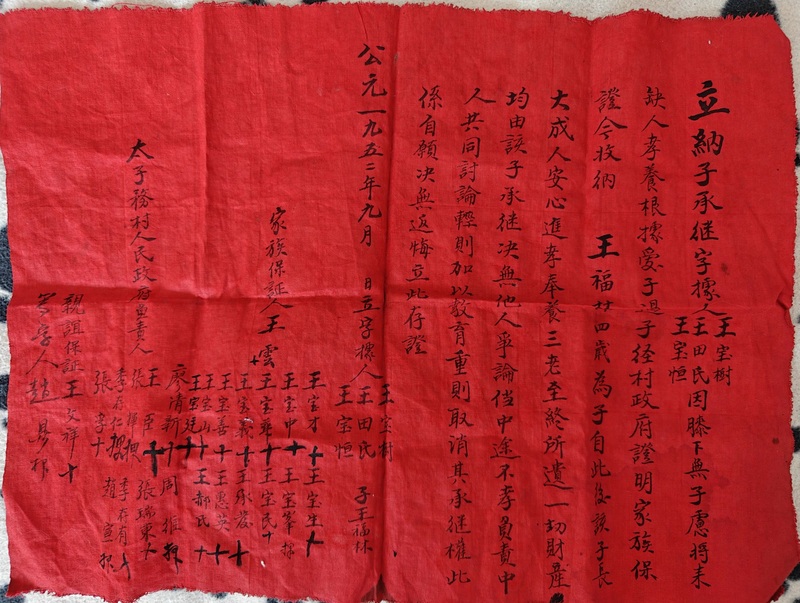 立納子承继字據人王宝樹
王田氏因膝下無子慮將来
王宝恒
缺人孝養根據愛子過子径村政府證明家族保
證今收納 王福廿四歲為子自此後該子長
大成人安心進孝奉養三老至終所遺一切財產
均由該子承继决無他人爭論倘中途不孝員責中
人共同討論輕則加以教育重則取消其承继權此
係自願决無返悔立此存證
公元一九五二年九月 日立字據人
王宝樹
王田氏
王宝恒
子王福林
家族保証人王雲十
王宝才十 王宝生十
王宝中十 王宝峯押
王宝華十 王宝民十
王宝義十 王承发十
王宝善十 王惠英十
王宝山十 王郝氏十
王宝廷十
廖清新十 周 押
太子務村人民政府負責人
王 十 張瑞東十
張 押
李存仁押 李存有十
張 十 趙 押
親誼保証王文祥十
寫字人趙 押